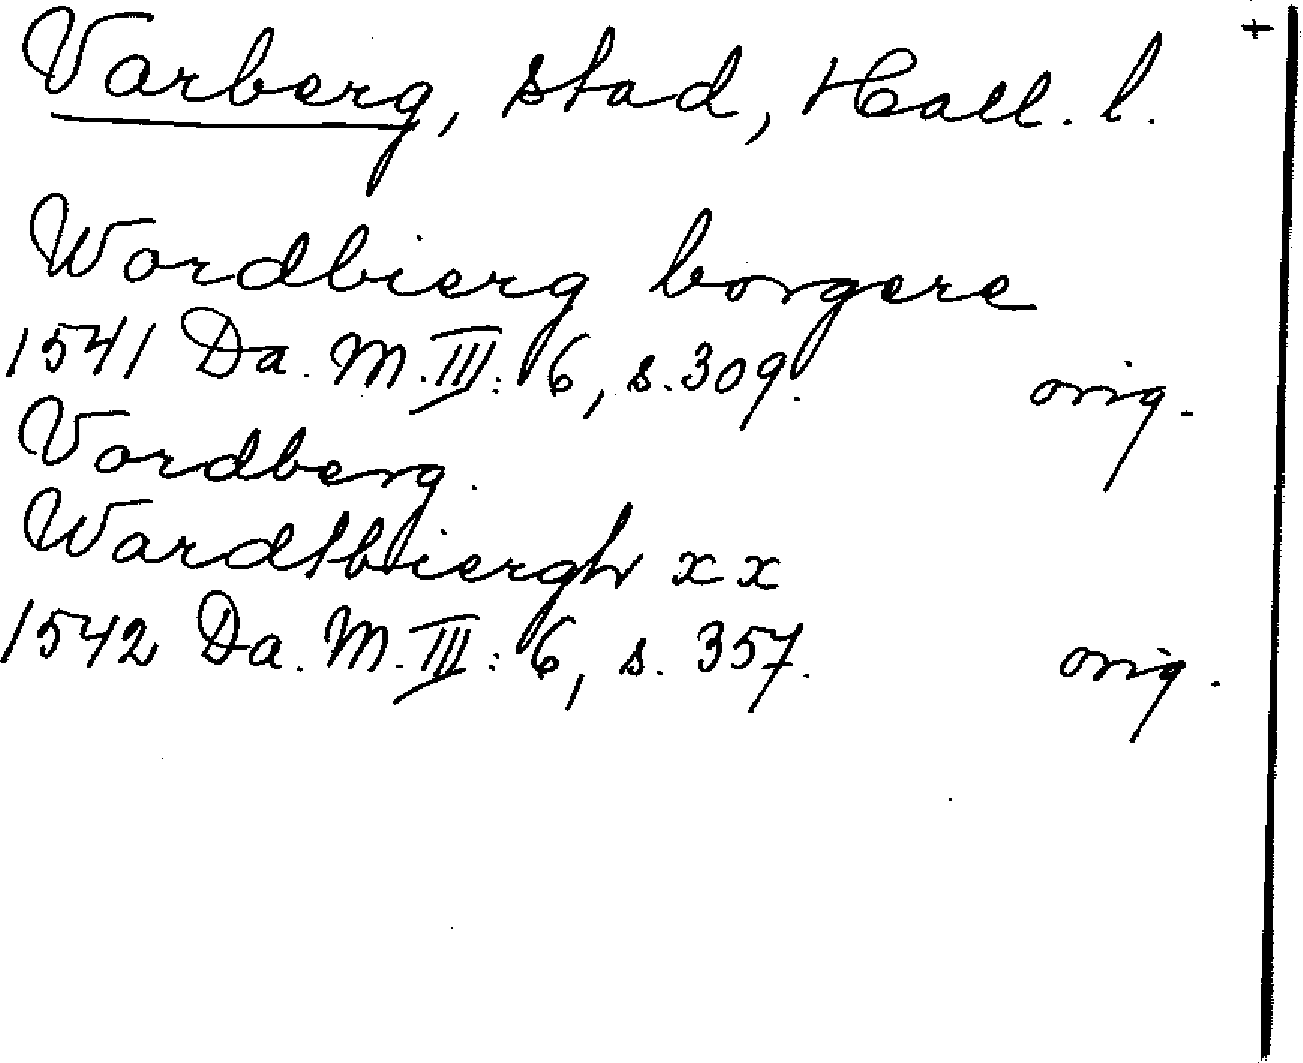 Varberg, stad, Hall. l.
Wordbierg borgere
1541 Da. M. III: 6, s. 309. orig.
Vordberg.
Wardtbiergh x x
1542 Da. M. III: 6, s. 357. orig.